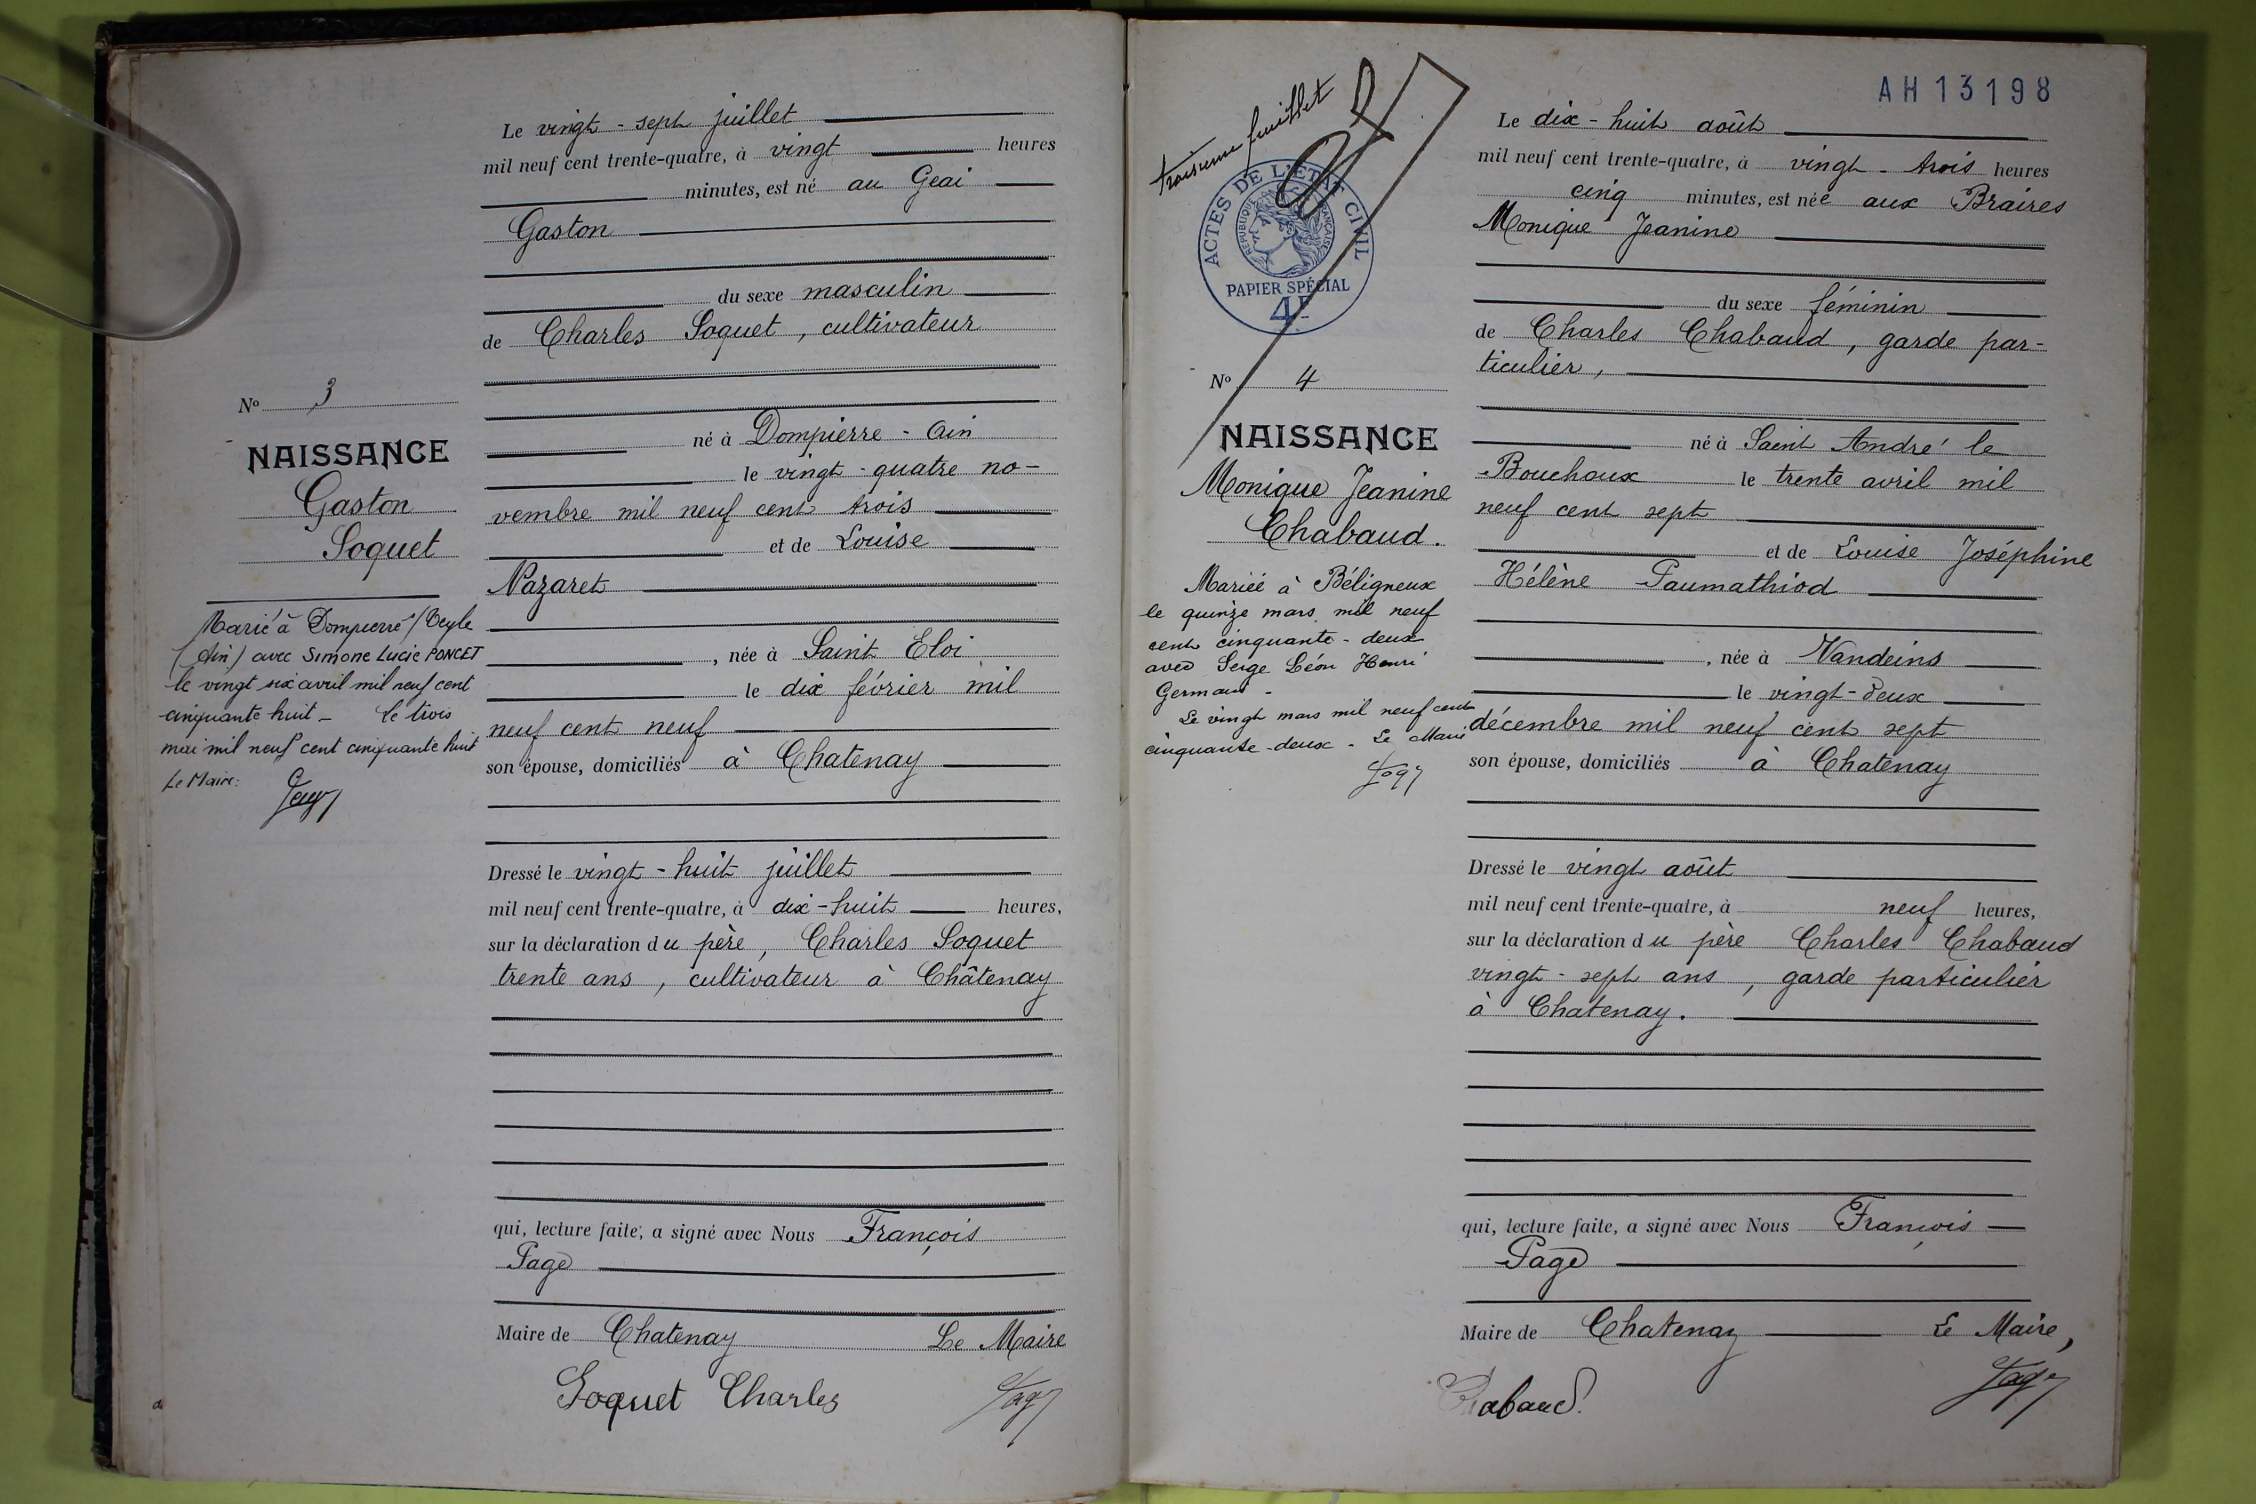 Le vingt-sept juillet
mil neuf cent trente-quatre, à vingt heures
minutes, est né au Geai
Gaston
du sexe masculin
de Charles Soquet, cultivateur
né à Dompierre - Ain
le vingt-quatre no-
vembre mil neuf cent trois
et de Louise
Nazaret
, née à Saint Eloi
le dix février mil
neuf cent neuf
son épouse, domiciliés à Chatenay
Dressé le vingt-huit juillet
mil neuf cent trente-quatre, à dix-huit heures,
sur la déclaration du père, Charles Soquet
trente ans, cultivateur à Châtenay
qui, lecture faite, a signé avec Nous François
Page
Maire de Chatenay Le Maire
Soquet Charles
N° 3
NAISSANCE
Gaston
Soquet
Marié à Dompierre s/Veyle
(Ain) avec Simone Lucie PONCET
le vingt six avril mil neuf cent
cinquante huit - Le trois
mai mil neuf cent cinquante huit
Le Maire:
AH 13198
troisième feuillet
ACTES DE L'ETAT CIVIL
REPUBLIQUE FRANÇAISE
PAPIER SPÉCIAL
4F
N° 4
NAISSANCE
Monique Jeanine
Chabaud.
Mariée à Béligneux
le quinze mars mil neuf
cent cinquante-deux
avec Serge Léon Henri
Germain -
Le vingt mars mil neuf cent
cinquante-deux - Le Maire
Le dix-huit août
mil neuf cent trente-quatre, à vingt-trois heures
cinq minutes, est née aux Braires
Monique Jeanine
du sexe féminin
de Charles Chabaud, garde par-
ticulier,
né à Saint André le
Bouchoux le trente avril mil
neuf cent sept
et de Louise Joséphine
Hélène Paumathiod
, née à Vandeins
le vingt-deux
décembre mil neuf cent sept
son épouse, domiciliés à Chatenay
Dressé le vingt août
mil neuf cent trente-quatre, à neuf heures,
sur la déclaration du père Charles Chabaud
vingt-sept ans, garde particulier
à Chatenay.
qui, lecture faite, a signé avec Nous François
Page
Maire de Chatenay Le Maire,
Chabaud.